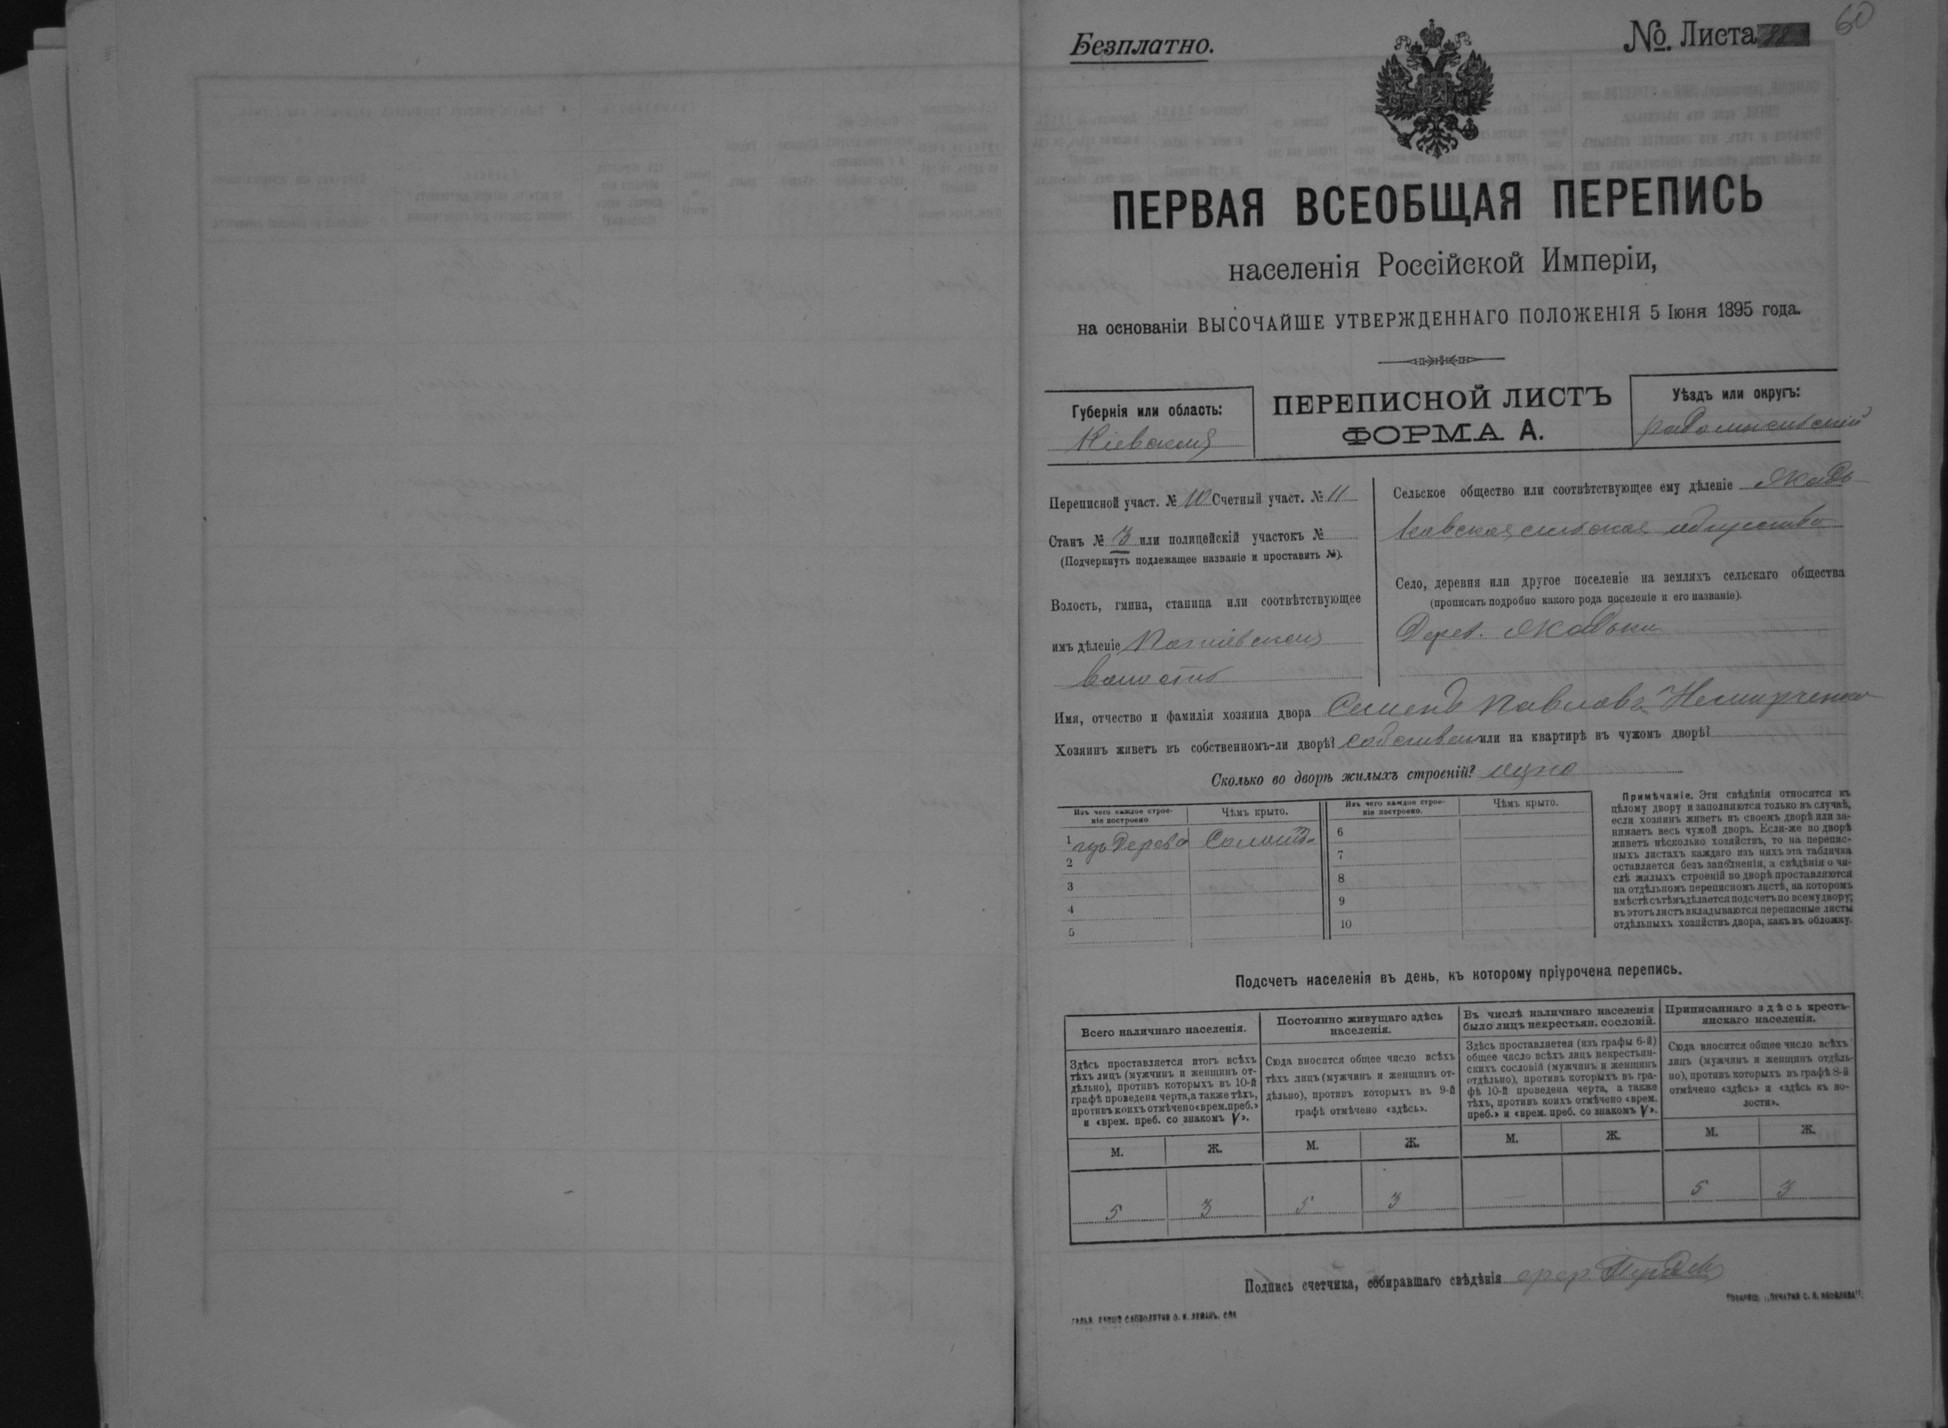 Безплатно.
№ Листа 88
60
ПЕРВАЯ ВСЕОБЩАЯ ПЕРЕПИСЬ
населенія Россійской Имперіи,
на основаніи ВЫСОЧАЙШЕ УТВЕРЖДЕННАГО ПОЛОЖЕНІЯ 5 Іюня 1895 года.
Губернія или область:
Кіевская
ПЕРЕПИСНОЙ ЛИСТЪ
ФОРМА А.
Уѣздъ или округъ:
радомысльскій
Переписной участ. № 10 Счетный участ. № 11
Станъ № 3 или полицейскій участокъ №
(Подчеркнуть подлежащее названіе и проставить №).
Волость, гмина, станица или соотвѣтствующее
имъ дѣленіе
волость
Сельское общество или соотвѣтствующее ему дѣленіе
Село, деревня или другое поселеніе на земляхъ сельскаго общества
(прописать подробно какого рода поселеніе и его названіе).
Дерев.
Имя, отчество и фамилія хозяина двора Семенъ Павловъ Немирченко
Хозяинъ живетъ въ собственномъ-ли дворѣ? или на квартирѣ въ чужомъ дворѣ?
Сколько во дворѣ жилыхъ строеній?
Изъ чего каждое строе-
ніе построено
Чѣмъ крыто.
Изъ чего каждое строе-
ніе построено.
Чѣмъ крыто.
1 изъ дерева
2
3
4
5
6
7
8
9
10
Примѣчаніе. Эти свѣдѣнія относятся къ
цѣлому двору и заполняются только въ случаѣ,
если хозяинъ живетъ въ своемъ дворѣ или за-
нимаетъ весь чужой дворъ. Если-же во дворѣ
живетъ нѣсколько хозяйствъ, то на перепис-
ныхъ листахъ каждаго изъ нихъ эта табличка
оставляется безъ заполненія, а свѣдѣнія о чи-
слѣ жилыхъ строеній во дворѣ проставляются
на отдѣльномъ переписномъ листѣ, на которомъ
вмѣстѣ съ тѣмъ дѣлается подсчетъ по всему двору;
въ этотъ листъ вкладываются переписные листы
отдѣльныхъ хозяйствъ двора, какъ въ обложку.
Подсчетъ населенія въ день, къ которому пріурочена перепись.
Всего наличнаго населенія.
Здѣсь проставляется итогъ всѣхъ
тѣхъ лицъ (мужчинъ и женщинъ от-
дѣльно), противъ которыхъ въ 10-й
графѣ проведена черта, а также тѣхъ,
противъ коихъ отмѣчено «врем. преб.»
и «врем. преб. со знакомъ V».
Постоянно живущаго здѣсь
населенія.
Сюда вносится общее число всѣхъ
тѣхъ лицъ (мужчинъ и женщинъ от-
дѣльно), противъ которыхъ въ 9-й
графѣ отмѣчено «здѣсь».
Въ числѣ наличнаго населенія
было лицъ некрестьян. сословій.
Здѣсь проставляется (изъ графы 6-й)
общее число всѣхъ лицъ некрестьян-
скихъ сословій (мужчинъ и женщинъ
отдѣльно), противъ которыхъ въ гра-
фѣ 10-й проведена черта, а также
тѣхъ, противъ коихъ отмѣчено «врем.
преб.» и «врем. преб. со знакомъ V».
Приписаннаго здѣсь кресть-
янскаго населенія.
Сюда вносится общее число всѣхъ
лицъ (мужчинъ и женщинъ отдѣль-
но), противъ которыхъ въ графѣ 8-й
отмѣчено «здѣсь» и «здѣсь къ во-
лости».
М. Ж. М. Ж. М. Ж. М. Ж.
5 3 5 3 5 3
Подпись счетчика, собиравшаго свѣдѣнія